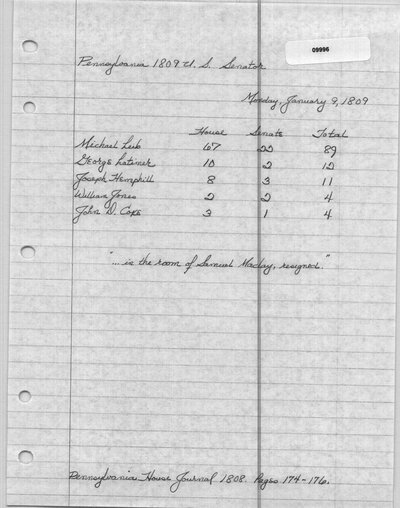 09996
Pennsylvania 1809 U. S. Senator
Monday, January 9, 1809
House Senate Total
Michael Leib 67 22 89
George Latimer 10 2 12
Joseph Hemphill 8 3 11
William Jones 2 2 4
John D. Coxe 3 1 4
"... in the room of Samuel Maclay, resigned."
Pennsylvania House Journal 1808. Pages 174-176.